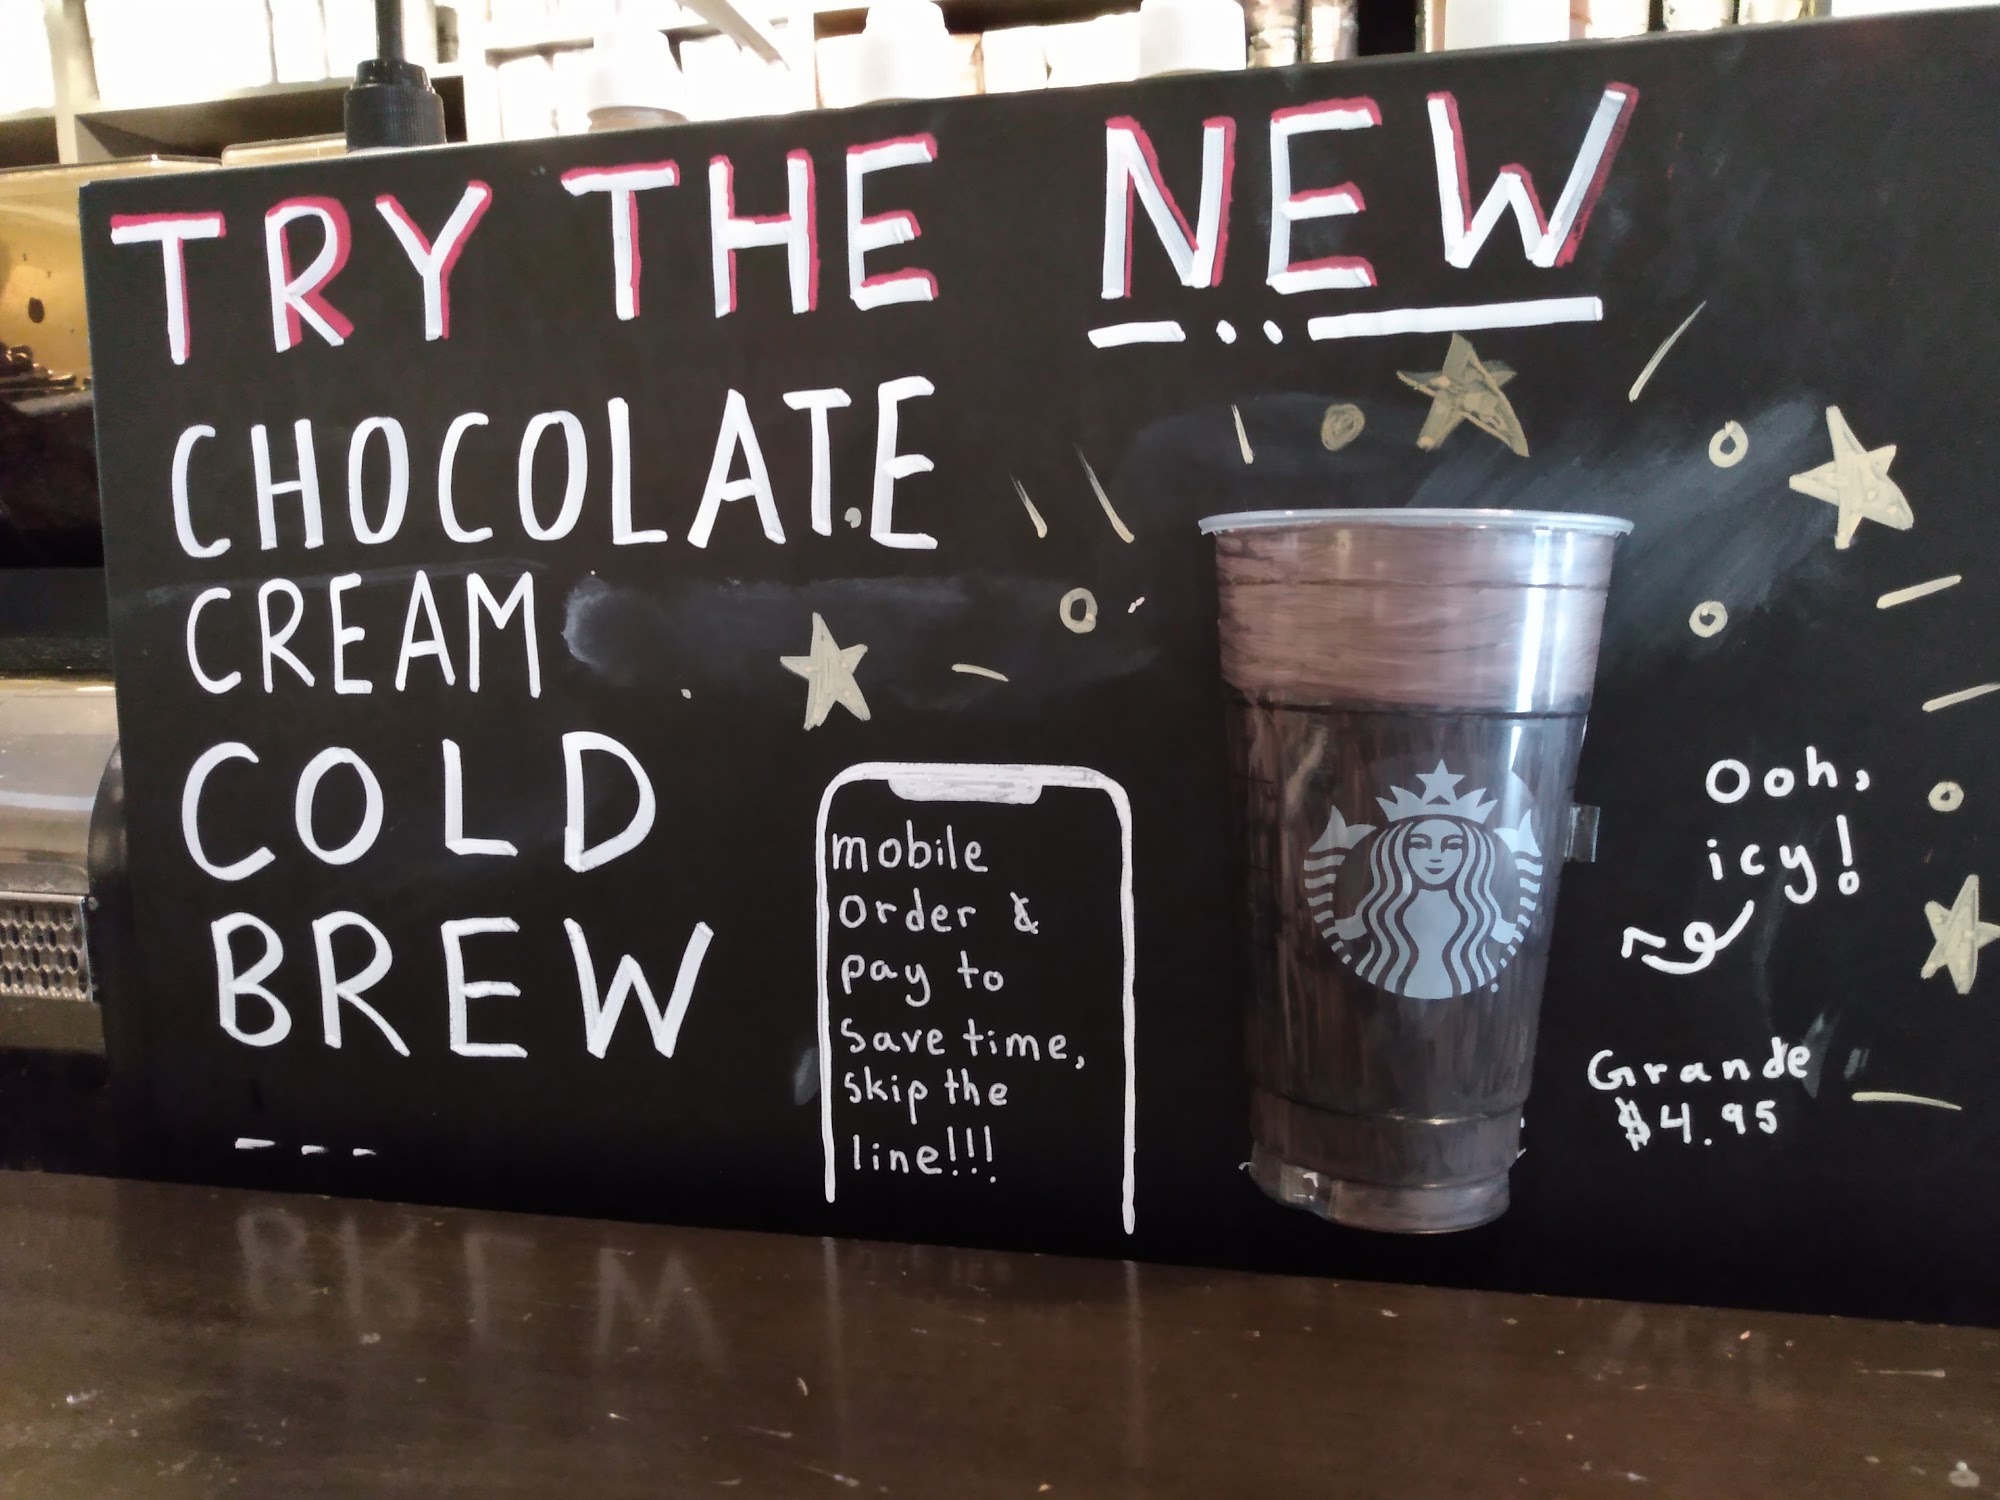 TRY THE NEW
CHOCOLATE
CREAM
COLD
BREW
mobile
order &
pay to
save time,
skip the
line!!!
Ooh,
icy!
Grande
$4.95